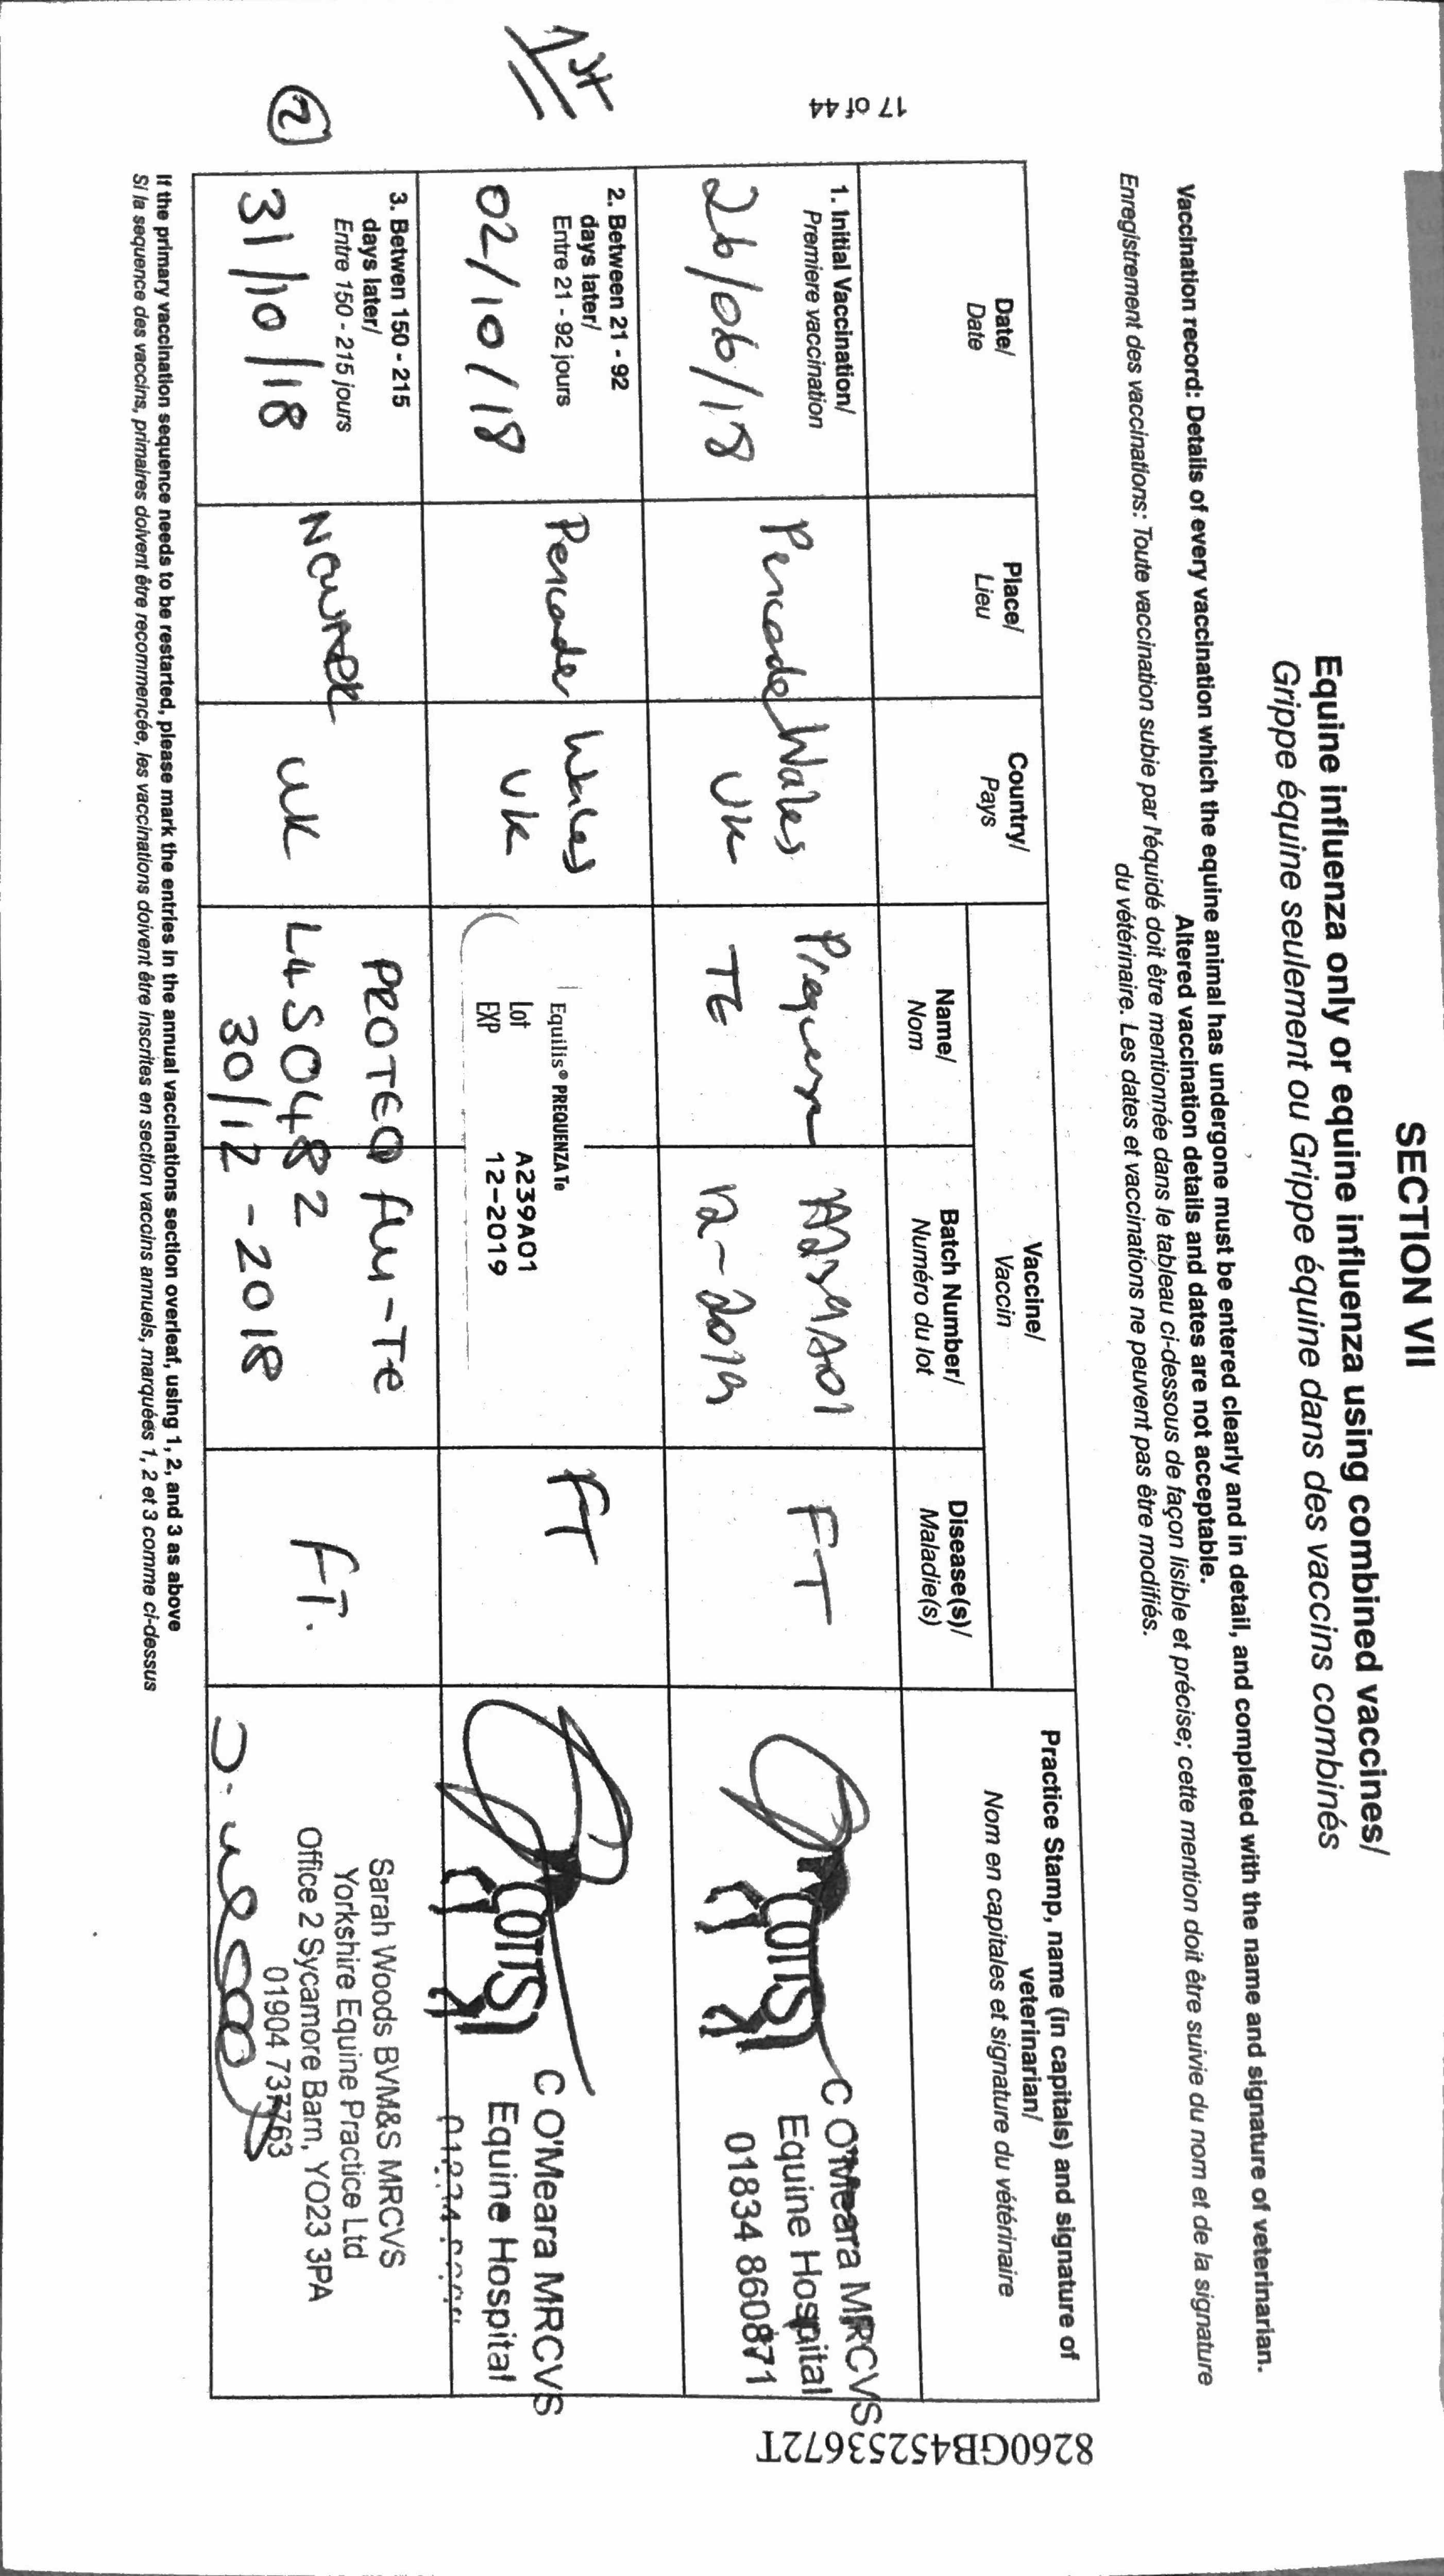 SECTION VII
Equine influenza only or equine influenza using combined vaccines/
Grippe équine seulement ou Grippe équine dans des vaccins combinés
Vaccination record: Details of every vaccination which the equine animal has undergone must be entered clearly and in detail, and completed with the name and signature of veterinarian.
Altered vaccination details and dates are not acceptable.
Enregistrement des vaccinations: Toute vaccination subie par l'équidé doit être mentionnée dans le tableau ci-dessous de façon lisible et précise; cette mention doit être suivie du nom et de la signature
du vétérinaire. Les dates et vaccinations ne peuvent pas être modifiés.
Date/
Date
Place/
Lieu
Country/
Pays
Vaccine/
Vaccin
Name/
Nom
Batch Number/
Numéro du lot
Disease(s)/
Maladie(s)
Practice Stamp, name (in capitals) and signature of
veterinarian/
Nom en capitales et signature du vétérinaire
1. Initial Vaccination/
Premiere vaccination
26/06/18
Wales
UK
TE
12-2019
FT
COTTS
C O'Meara MRCVS
Equine Hospital
01834 860871
1st
2. Between 21 - 92
days later/
Entre 21 - 92 jours
02/10/18
Wales
UK
Equilis® PREQUENZA Te
Lot A239A01
EXP 12-2019
FT
COTTS
C O'Meara MRCVS
Equine Hospital
2
3. Betwen 150 - 215
days later/
Entre 150 - 215 jours
31/10/18
UK
PROTEQ flu-Te
L4S0482
30/12-2018
FT.
Sarah Woods BVM&S MRCVS
Yorkshire Equine Practice Ltd
Office 2 Sycamore Barn, YO23 3PA
01904 737763
If the primary vaccination sequence needs to be restarted, please mark the entries in the annual vaccinations section overleaf, using 1, 2, and 3 as above
Si la sequence des vaccins, primaires doivent être recommencée, les vaccinations doivent être inscrites en section vaccins annuels, marquées 1, 2 et 3 comme ci-dessus
17 of 44
8260GB45253672T